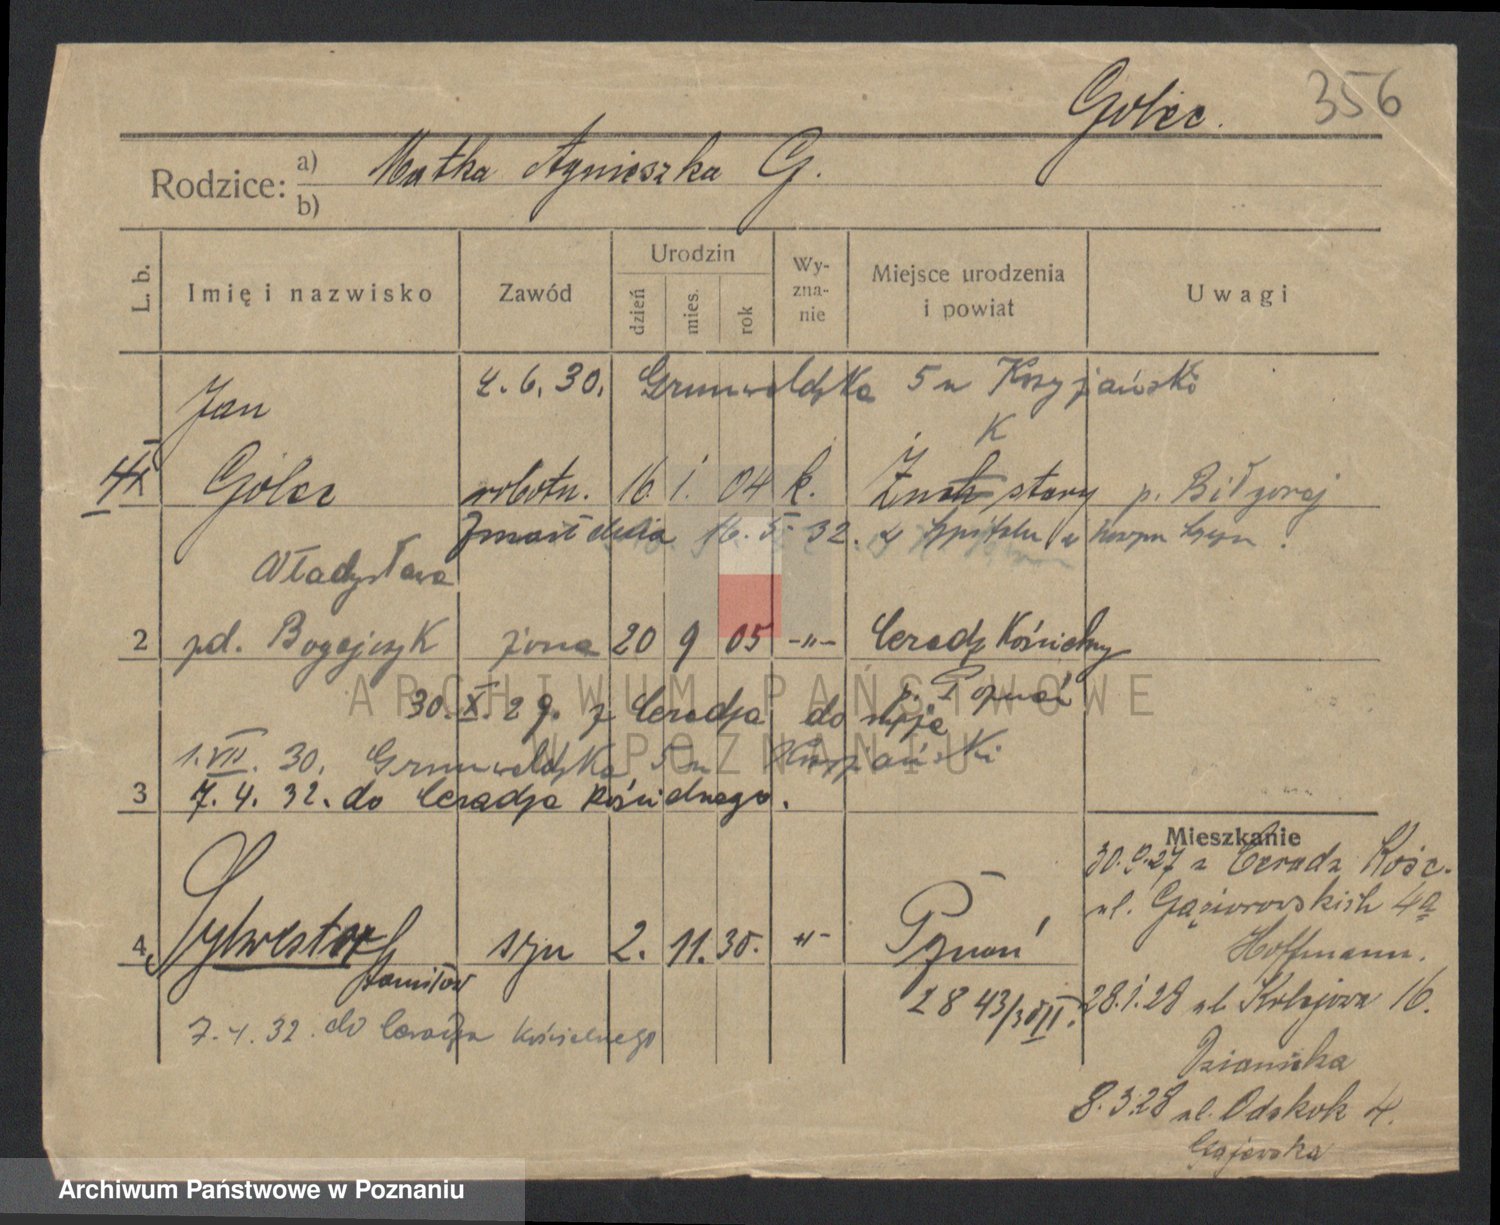 Golec. 356
Rodzice: a) Matka Agnieszka G.
b)
L. b. Imię i nazwisko Zawód Urodzin dzień mies. rok Wy-zna-nie Miejsce urodzenia i powiat Uwagi
Jan 4. 6. 30. Grunwaldzka 5 u
K
Golec robotn. 16 1. 04 k. stary p. Biłgoraj
16. 5. 32.
Władysława
2 pd. Bogajczyk żona 20 9 05 -"- Ceradz Kościelny
p. Poznań
30. X. 29. z Ceradza do męża
1. VII. 30. Grunwaldzka 5 u
3 7. 4. 32. do Ceradza Kościelnego.
Mieszkanie
30. 9. 27 z Ceradz Kośc.
ul. Gąsiorowskich 4a
4. Sylwester syn 2. 11. 30. -"- Poznań
Hoffmann.
Stanisław
2843/30/II.
28. 1. 28 ul. Kolejowa 16.
7. 4. 32. do Ceradza Kościelnego
8. 3. 28 ul. Odskok 4.
Gajewska
ARCHIWUM PAŃSTWOWE
W POZNANIU
Archiwum Państwowe w Poznaniu